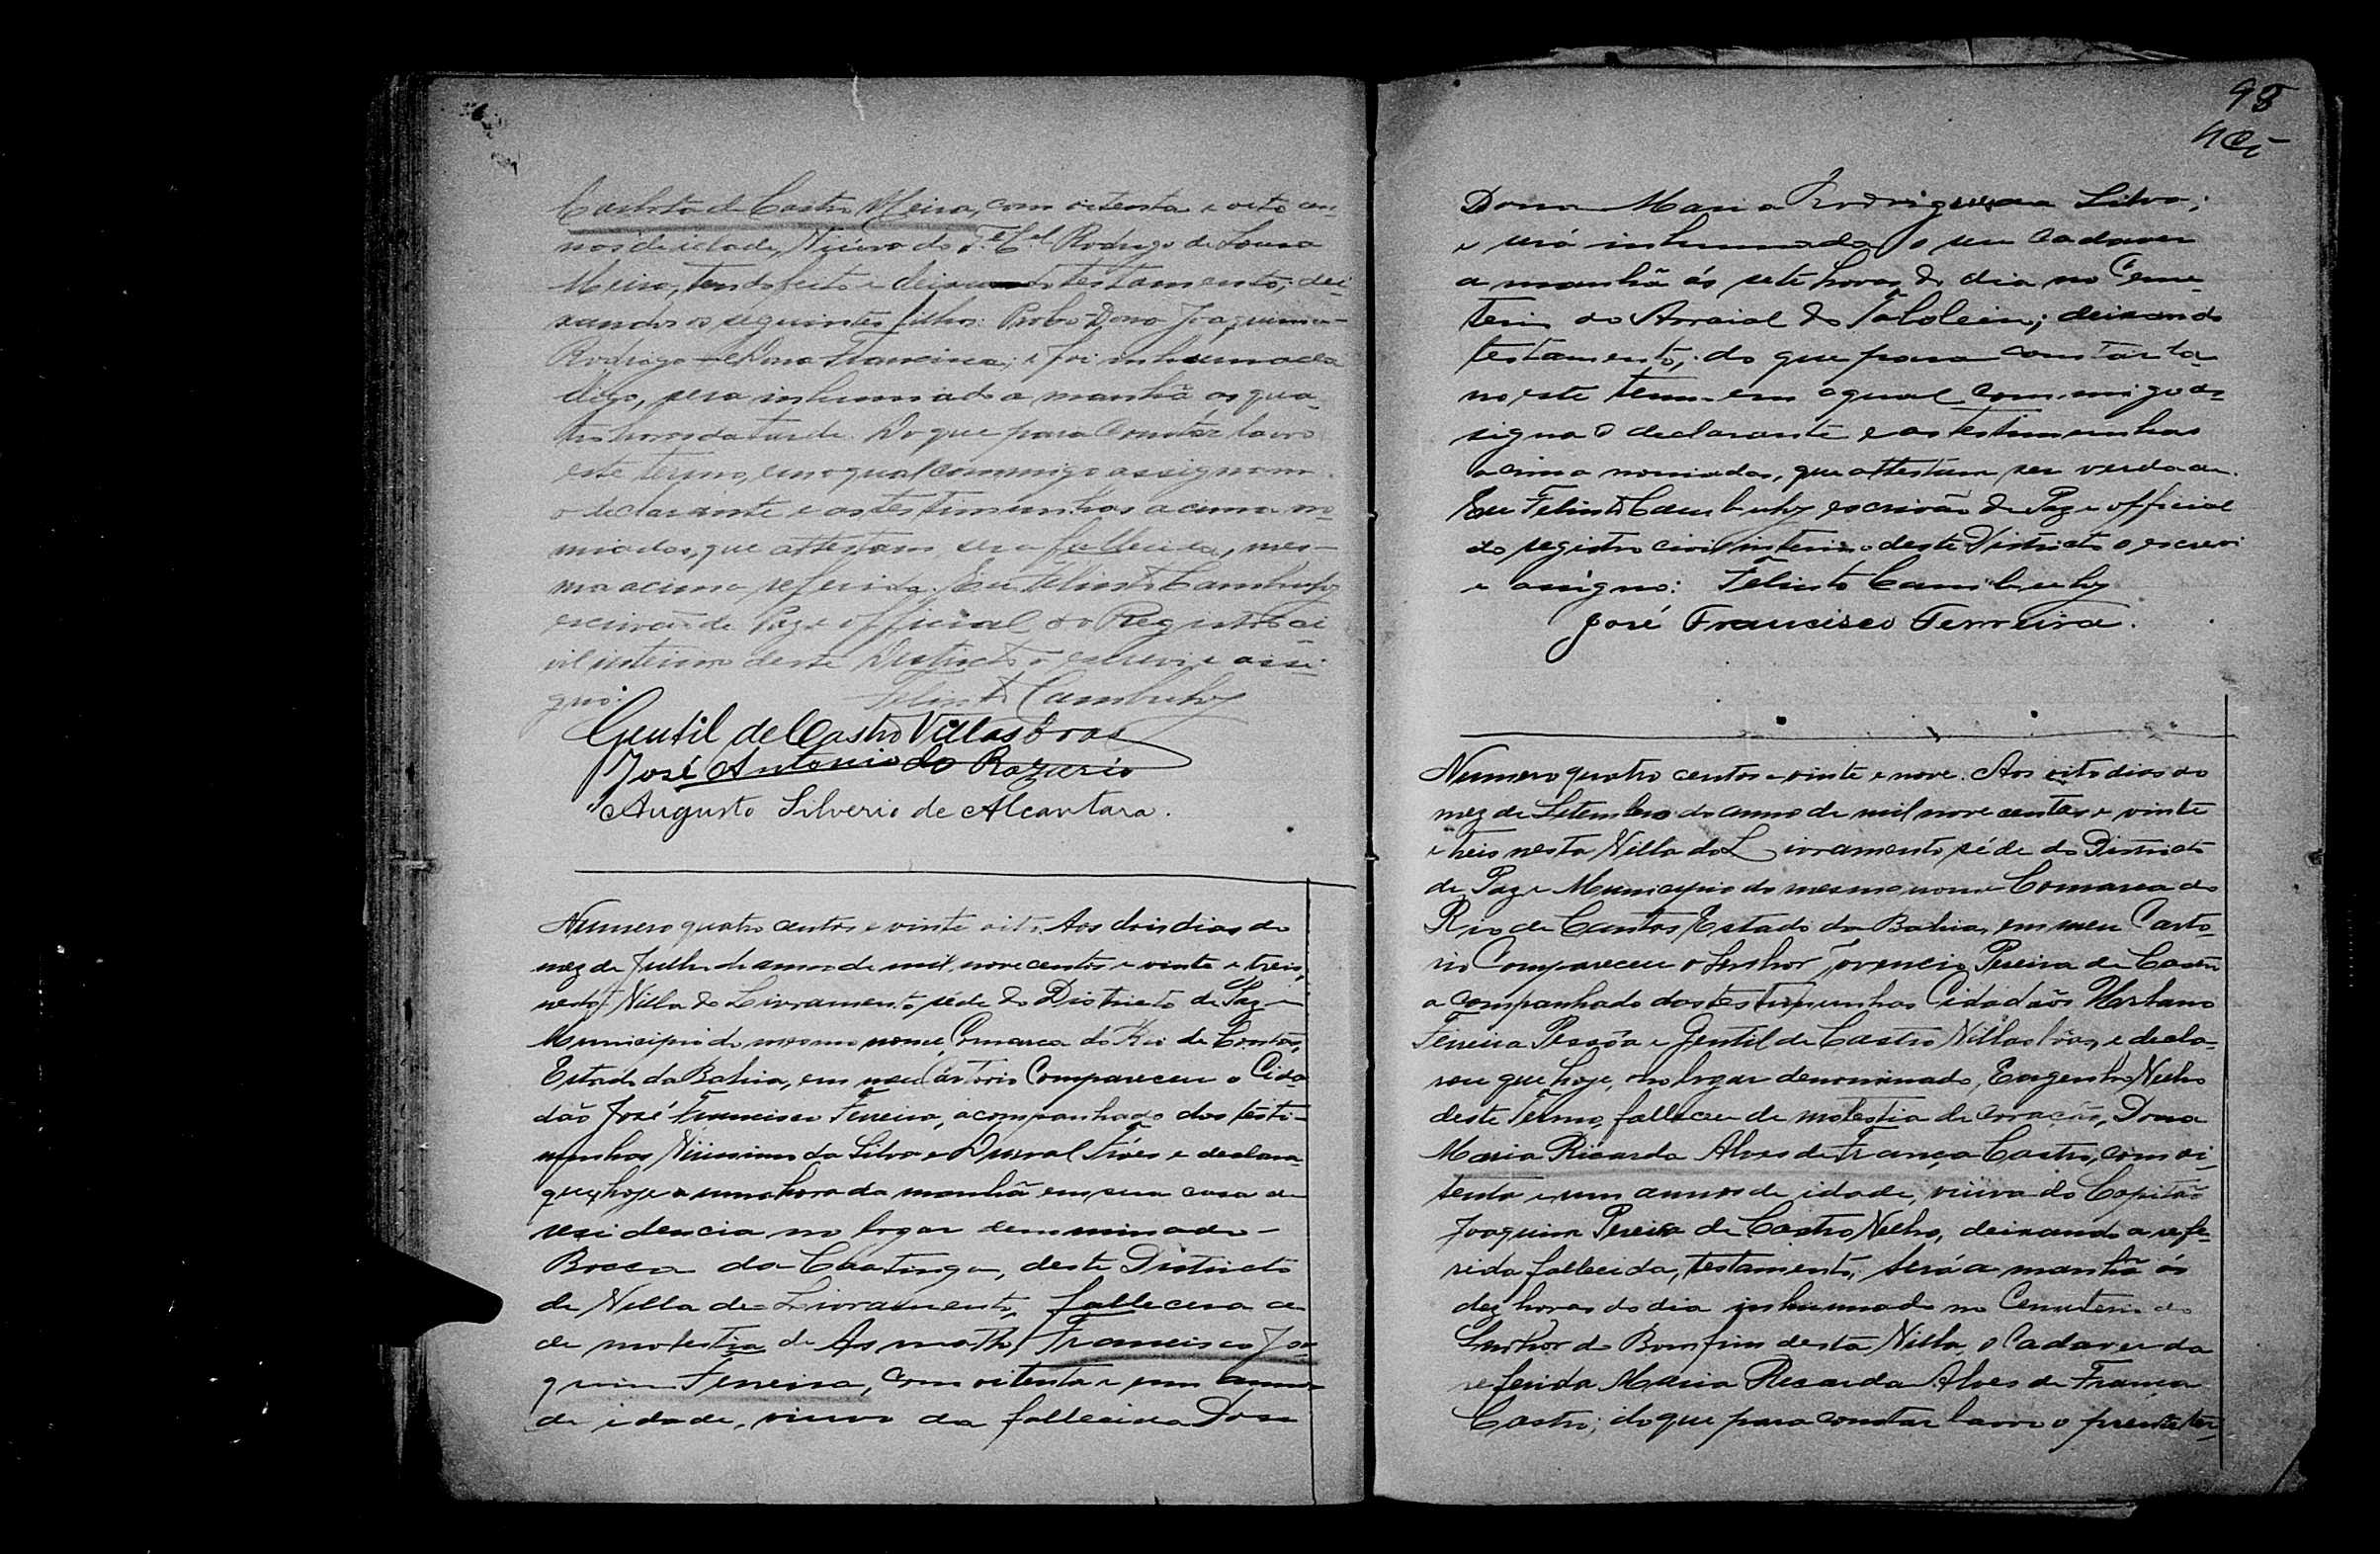 Carlota de Castro Meira, com oitenta e oito an-
nos de idade, Viúva do Te. Cel. Rodrigo de Souza
Meira, tendo feito e deixando testamento; dei-
xando os seguintes filhos: Probo Dona Joaquina-
Rodrigo e Dona Francisca; e foi inhumada
digo, sera inhumado a manhã as qua-
tro horas da tarde. Do que para constar lavro
este termo, em o qual commigo assignam
o declarante e as testimunhas acima no-
miadas, que attestam ser a fallecida, mes-
ma acima referida. Eu Felinto Cambuhy
escrivão de Paz e official do Registro ci-
vil interino deste Districto o escrevi e assi-
gno: Felinto Cambuhy
Gentil de Castro Villasbôas
José Antonio do Rozario
Augusto Silverio de Alcantara.
Numero quatro centos e vinte oito. Aos dois dias do
mez de Julho do anno de mil nove centos e vinte e treis,
nesta Villa do Livramento, séde do Districto de Paz e
Municipio do mesmo nome, Comarca do Rio de Contas,
Estado da Bahia, em meu Cartorio Compareceu o Cida-
dão José Francisco Ferreira, acompanhado das testi-
munhas da Silva e Durval e declara-
que, hoje a uma hora da manhã em sua casa de
residencia no logar denominado-
Bocca da Caatinga, deste Districto
de Villa de Livramento, fallecera
de molestia de Asmatha, Francisco Joa-
quim Ferreira, com oitenta e um annos
de idade, viuvo da fallecida Dona
98
Dona Maria Rodrigues da Silva;
e será inhumado o seu cadaver
a manhã ás sete horas do dia no Ceme-
terio do Arraial do Taboleiro; deixando
testamento; do que para constar la-
vro este termo em o qual commigo as-
signa o declarante e as testimunhas
acima nomiadas, que attestam ser verdade.
Eu Felinto Cambuhy escrivão de Paz e official
do registro civil interino deste Districto o escrevi
e assigno: Felinto Cambuhy
José Francisco Ferreira.
Numero quatro centos e vinte e nove. Aos oito dias do
mez de Setembro do anno de mil nove centos e vinte
e treis nesta Villa do Livramento, séde do Districto
de Paz e Municipio do mesmo nome Comarca do
Rio de Contas, Estado da Bahia, em meu Carto-
rio Compareceu o Senhor Jovencio Pereira de Castro
acompanhado das testimunhas Cidadãos Urbano
Ferreira Pessôa e Gentil de Castro Villasbôas, e decla-
rou que hoje, no logar denominado, Engenho Velho
deste Termo, falleceu de molestia de coração, Dona
Maria Ricarda Alves de França Castro, com oi-
tenta e um annos de idade, viuva do Capitão
Joaquim Pereira de Castro Velho, deixando a refe-
rida fallecida, testamento; será a manhã ás
dez horas do dia inhumado no Cemeterio do
Senhor do Bomfim desta Villa, o Cadaver da
referida Maria Ricarda Alves de França
Castro; do que para constar lavro o presente ter-